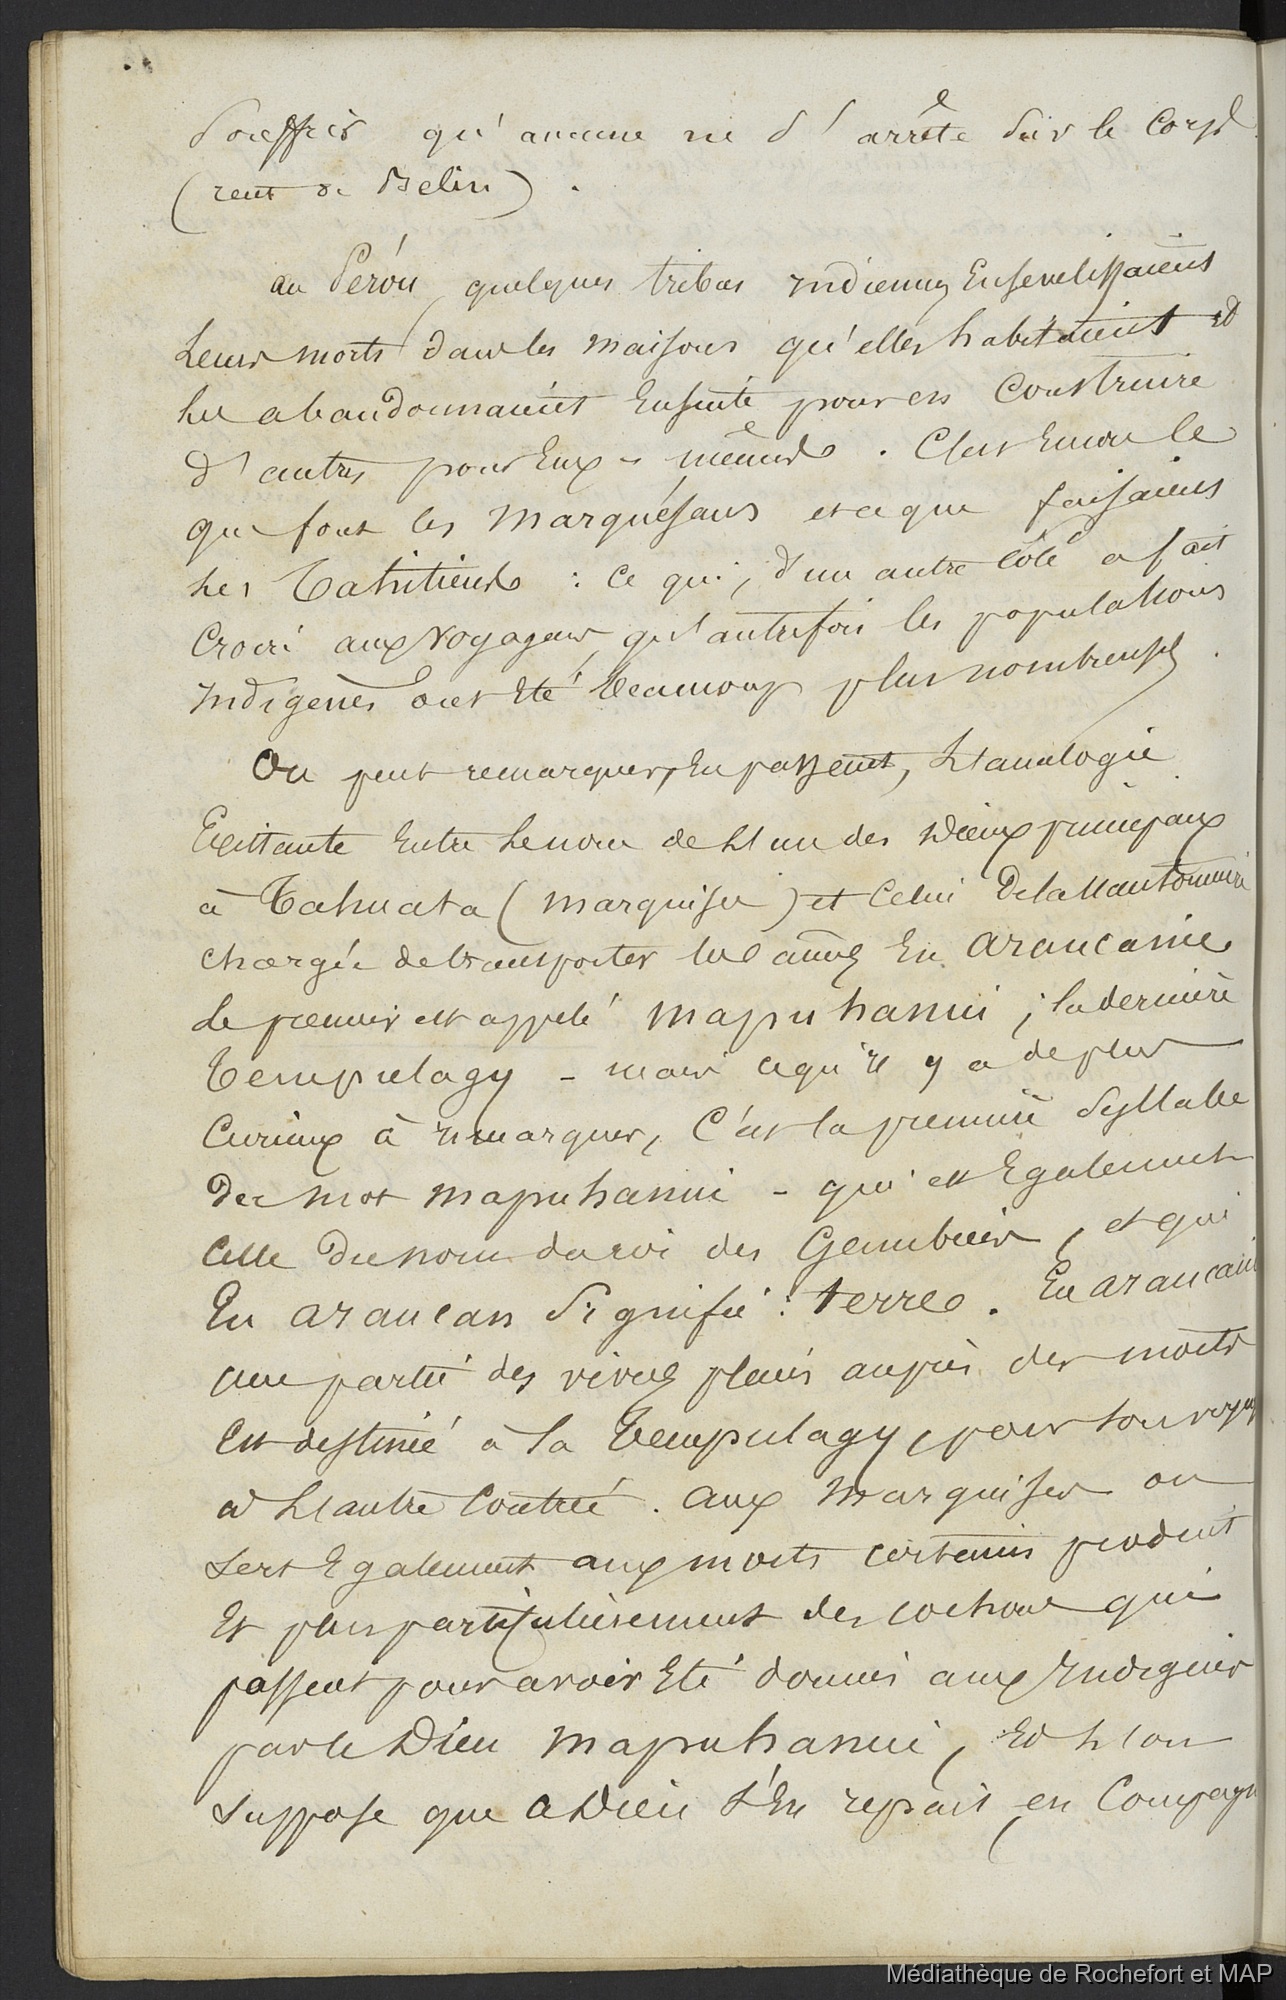 Souffrir qu'aucune ne s'arrête sur le corps
(rent de Belin).
au Pérou, quelques tribus indiennes Ensevelissaient
Leurs morts dans les maisons qu'elles habitaient et
les abandonnaient Ensuite pour en Construire
d'autres pour Eux-mêmes. C'est Encore le
que font les Marquésans et ce que faisaient
les Tahitiens : Ce qui, d'un autre côté a fait
Croire aux voyageurs, qu'autrefois les populations
indigènes ont Eté beaucoup plus nombreuses.
On peut remarquer, En passant, L'analogie
Existante Entre Le nom de L'un des Dieux principaux
à Tahuata (Marquises) et Celui De la
chargée de transporter les âmes En Araucanie
Le premier est appelé mapuhanui ; la dernière
Tempulagy - mais ce qu'il y a de plus
Curieux à remarquer, C'est la première Syllabe
Du mot mapuhanui - qui est Egalement
Celle Du nom du roi des Gambier, et qui
En araucan Signifie : terre. En araucanie
une partie des vivres placés auprès des morts
Est destinée à la Tempulagy, pour son voyage
à L'autre Contrée. aux Marquises on
sert Egalement aux morts certains produits
Et plus particulièrement des cochons qui
passent pour avoir Eté donnés aux Indigènes
par le Dieu mapuhanui, Et L'on
suppose que ce Dieu s'En repait, en Compagn
Médiathèque de Rochefort et MAP